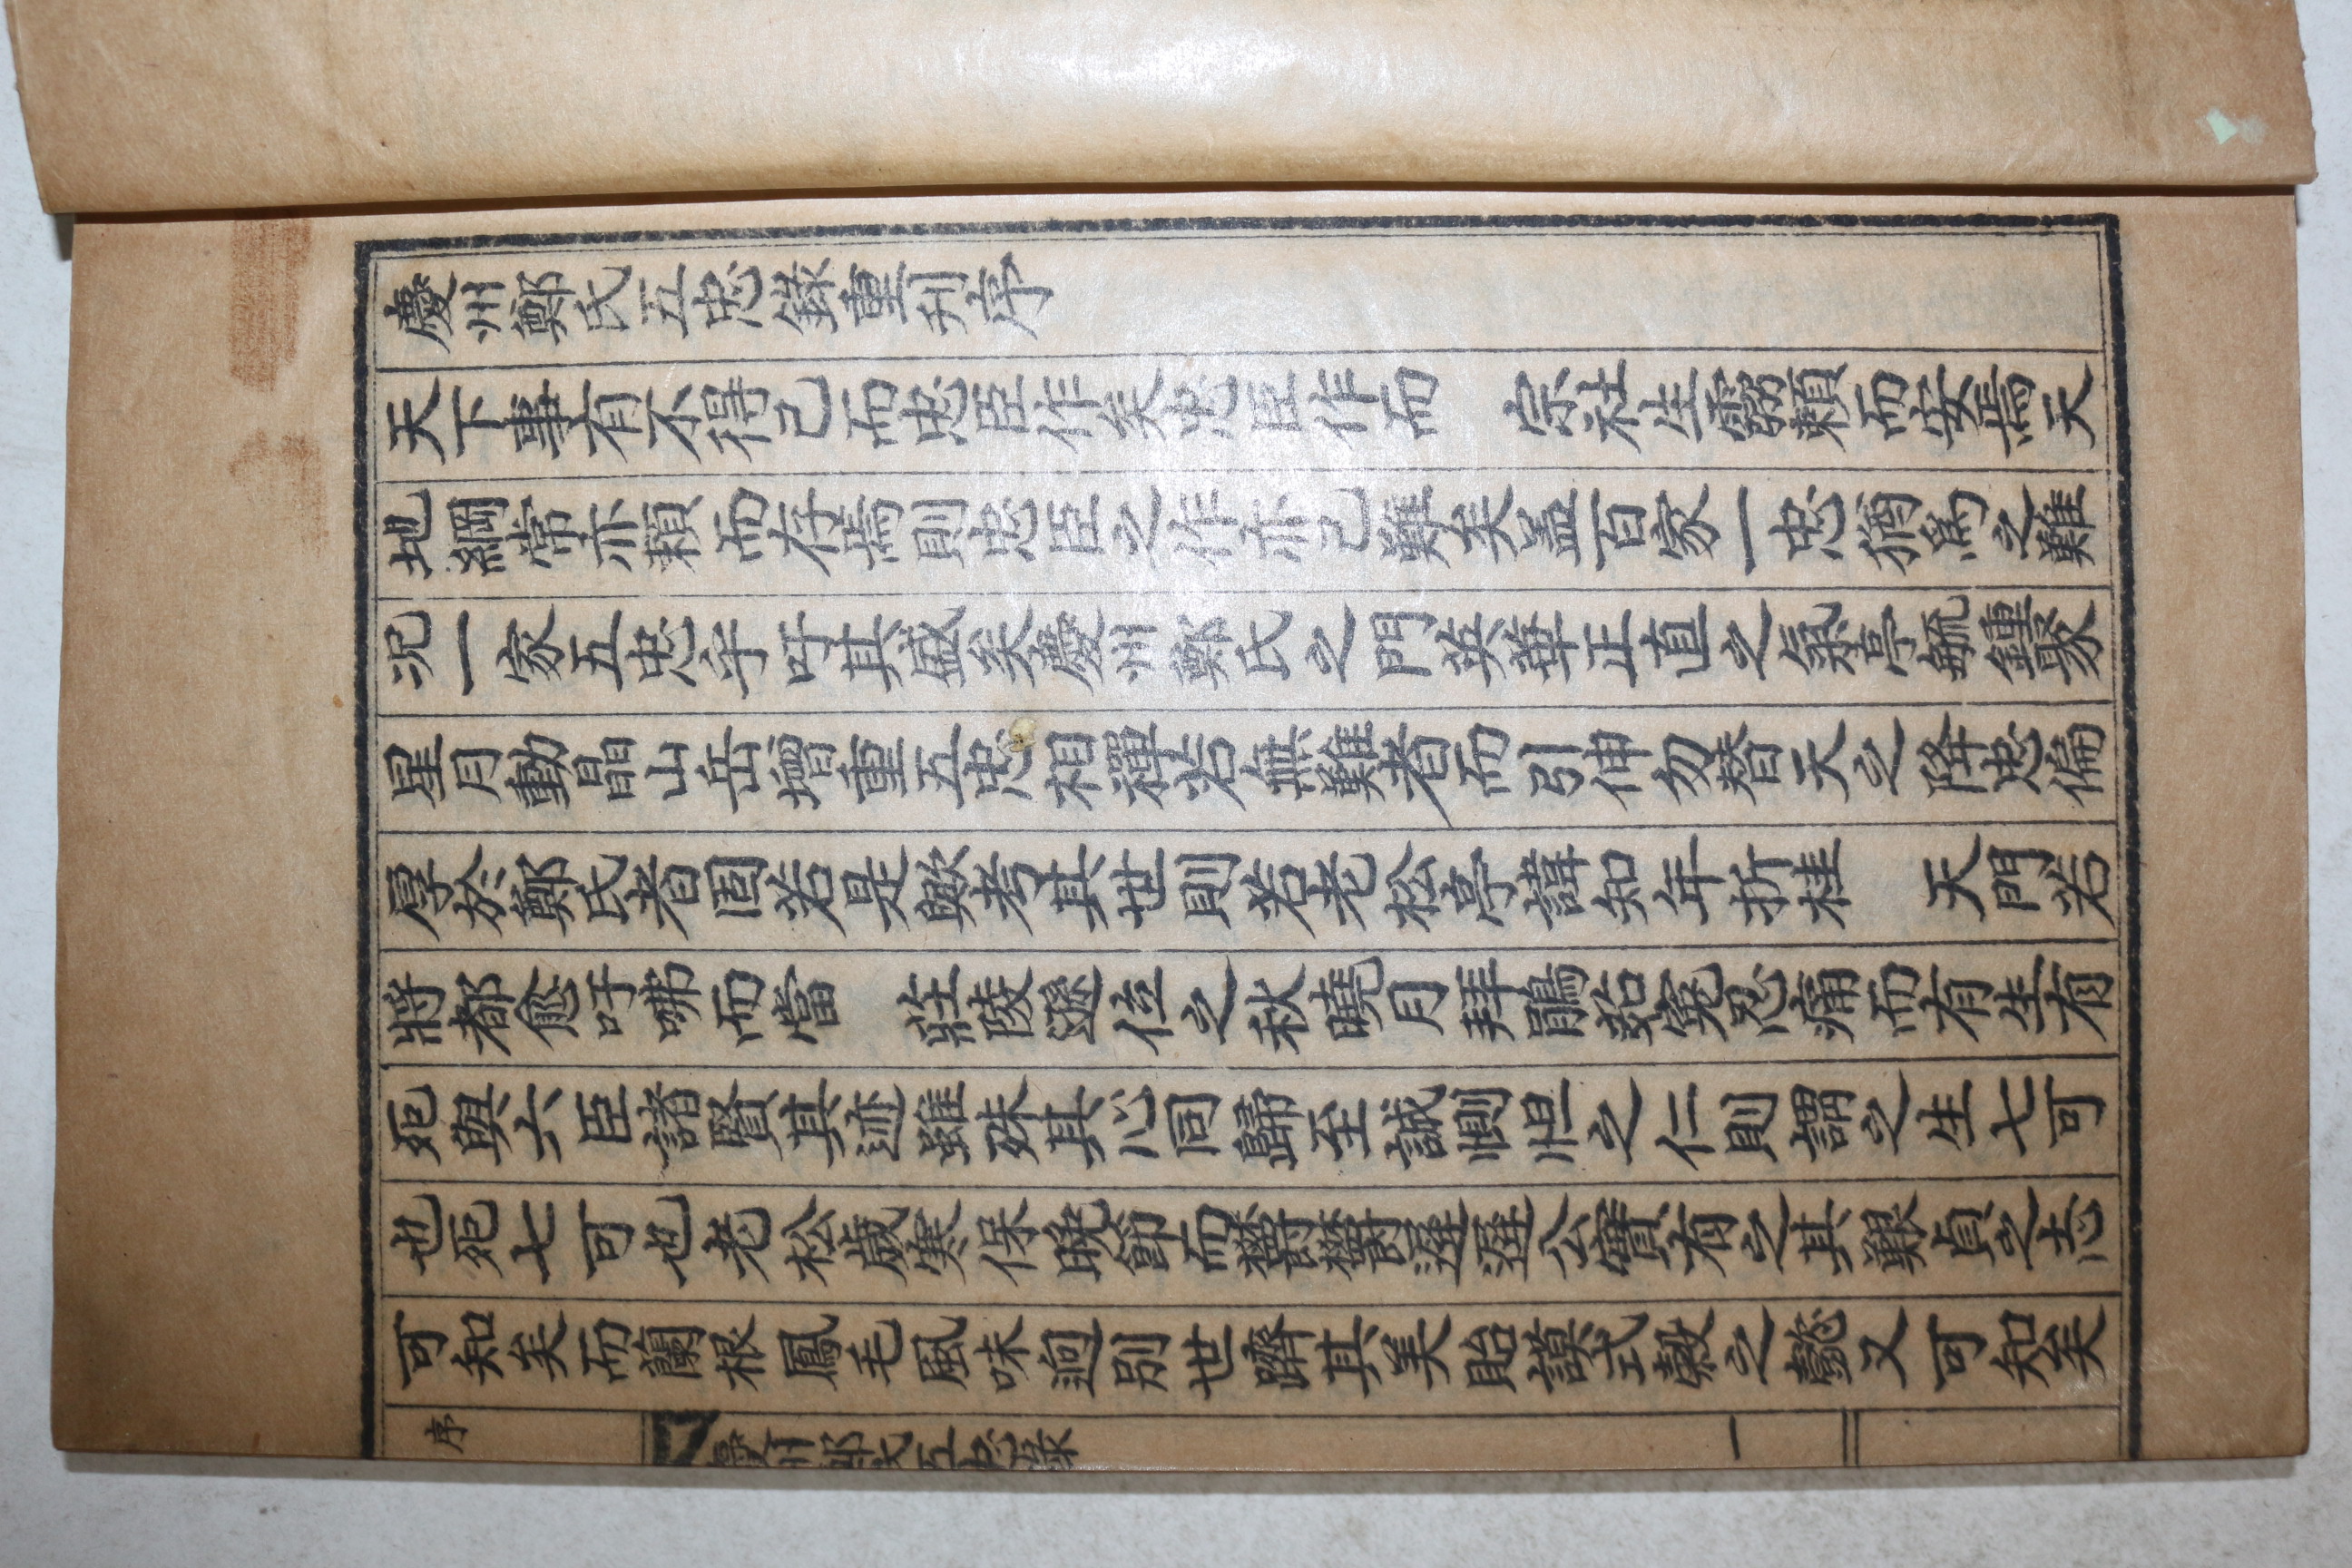 慶州鄭氏五忠錄重刊序
天下事有不得已而忠臣作矣忠臣作而　宗社生霛賴而安焉天
地綱常亦賴而存焉則忠臣之作亦已難矣盖百家一忠猶爲之難
况一家五忠乎吁其盛矣慶州鄭氏之門英華正直之氣亭毓鍾聚
星月動晶山岳增重五忠相禪若無難者而引伸勿替天之降忠偏
厚於鄭氏者固若是歟考其世則若老松亭諱知年折桂　天門若
將都愈吁咈而當　莊陵遜位之秋曉月拜鵑茹寃忍痛而有生有
死與六臣諸賢其迹雖殊其心同歸至誠惻怛之仁則謂之生七可
也死七可也老松歲寒保晩節而欝欝遲遲公實有之其艱貞之志
可知矣而蘭根鳳毛風味逈别世躋其美貽謨式糓之懿又可知矣
序
慶州鄭氏五忠錄
一